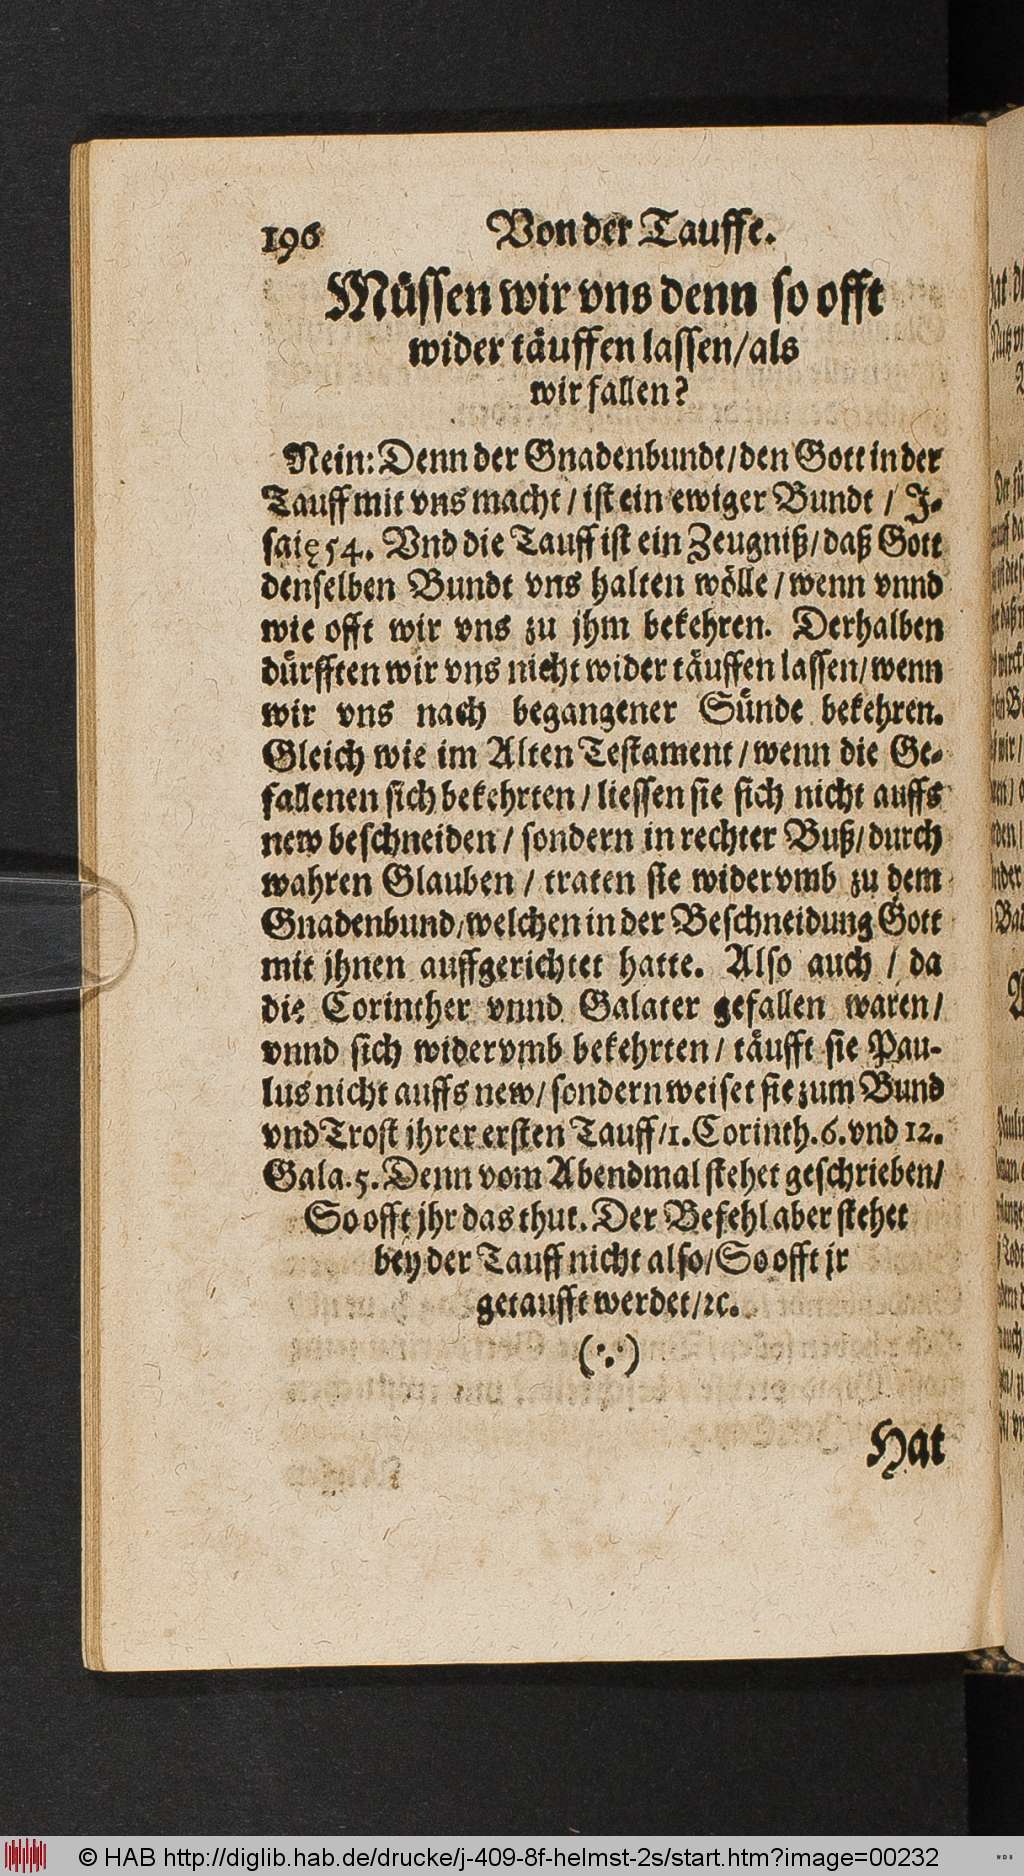 196 Von der Tauffe.
Müssen wir vns denn so offt
wider täuffen lassen/als
wir fallen?
Nein: Denn der Gnadenbundt/den Gott in der
Tauff mit vns macht / ist ein ewiger Bundt / J-
saię 54. Vnd die Tauff ist ein Zeugniß/daß Gott
denselben Bundt vns halten wölle / wenn vnnd
wie offt wir vns zu jhm bekehren. Derhalben
dürfften wir vns nicht wider täuffen lassen/wenn
wir vns nach begangener Sünde bekehren.
Gleich wie im Alten Testament / wenn die Ge-
fallenen sich bekehrten / liessen sie sich nicht auffs
new beschneiden / sondern in rechter Buß/durch
wahren Glauben / traten sie widervmb zu dem
Gnadenbund/welchen in der Beschneidung Gott
mit jhnen auffgerichtet hatte. Also auch / da
die Corinther vnnd Galater gefallen waren/
vnnd sich widervmb bekehrten / täufft sie Pau-
lus nicht auffs new/sondern weiset sie zum Bund
vnd Trost jhrer ersten Tauff/1. Corinth. 6. vnd 12.
Gala. 5. Denn vom Abendmal stehet geschrieben/
So offt jhr das thut. Der Befehl aber stehet
bey der Tauff nicht also/So offt jr
getaufft werdet/ꝛc.
(∵)
Hat
© HAB http://diglib.hab.de/drucke/j-409-8f-helmst-2s/start.htm?image=00232